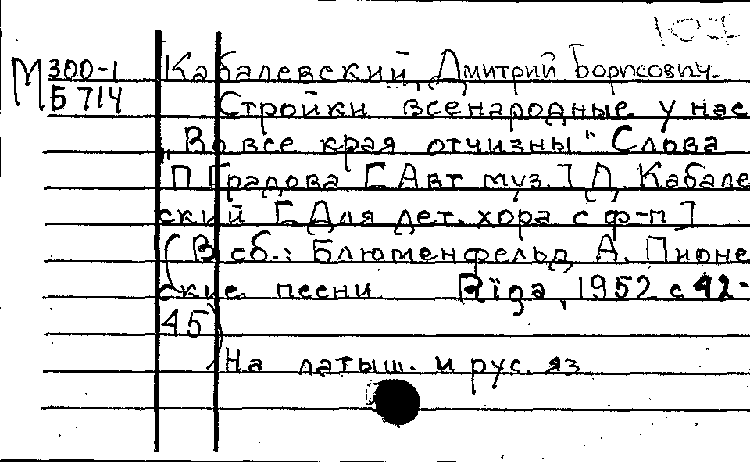 107
М 300-1 Кабалевский, Дмитрий Борисович.
Б 714 Стройки всенародные у нас
„Во все края отчизны" Слова
П Градова [Авт муз.] Д. Кабале
ский [Для дет. хора с ф-п]
(В сб.: Блюменфельд, А. Пионе
ские песни Rīga, 1952 с 42-
45)
На латыш. и рус. яз